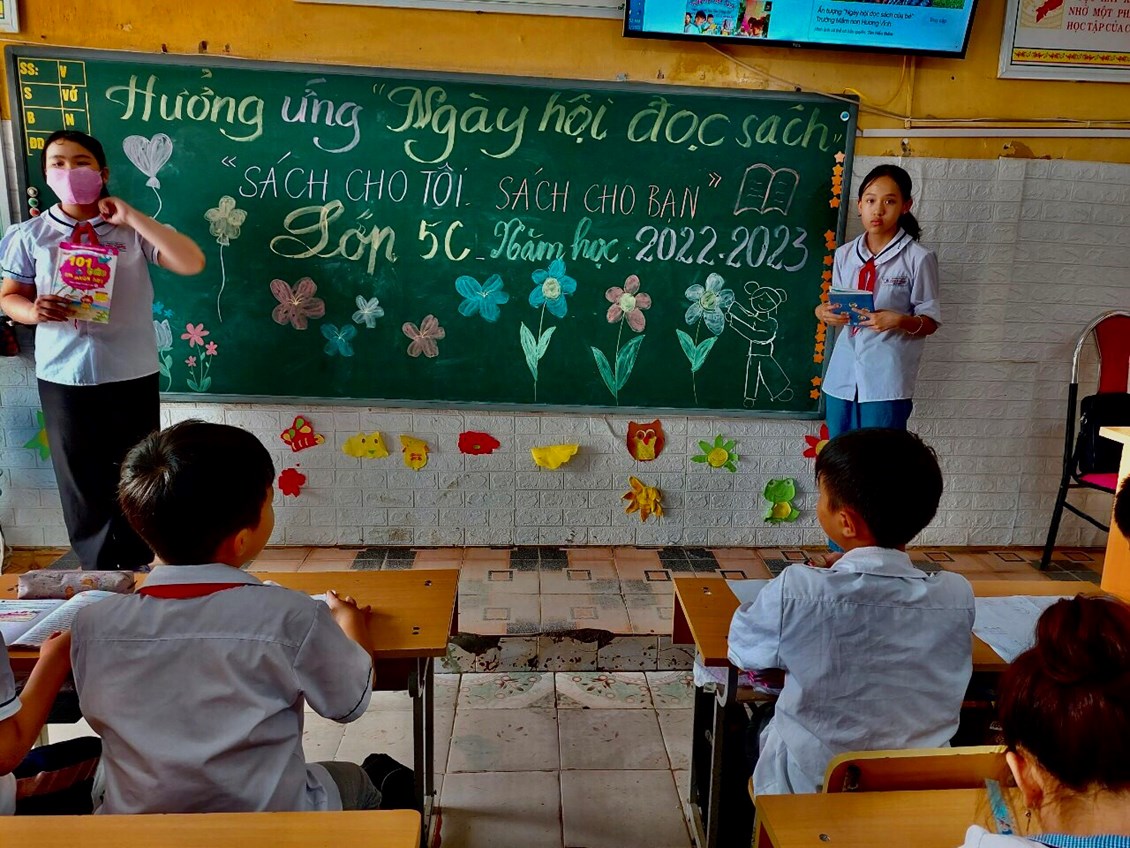 Ấn tượng "Ngày hội đọc sách của bé"
Trường Mầm non Hương Vĩnh
NHỚ MỘT PH
HỌC TẬP CỦA C
SS: V
S VỚ
B N
ĐD
Hưởng ứng "Ngày hội đọc sách"
"SÁCH CHO TÔI. SÁCH CHO BẠN"
Lớp 5C - Năm học 2022-2023
101